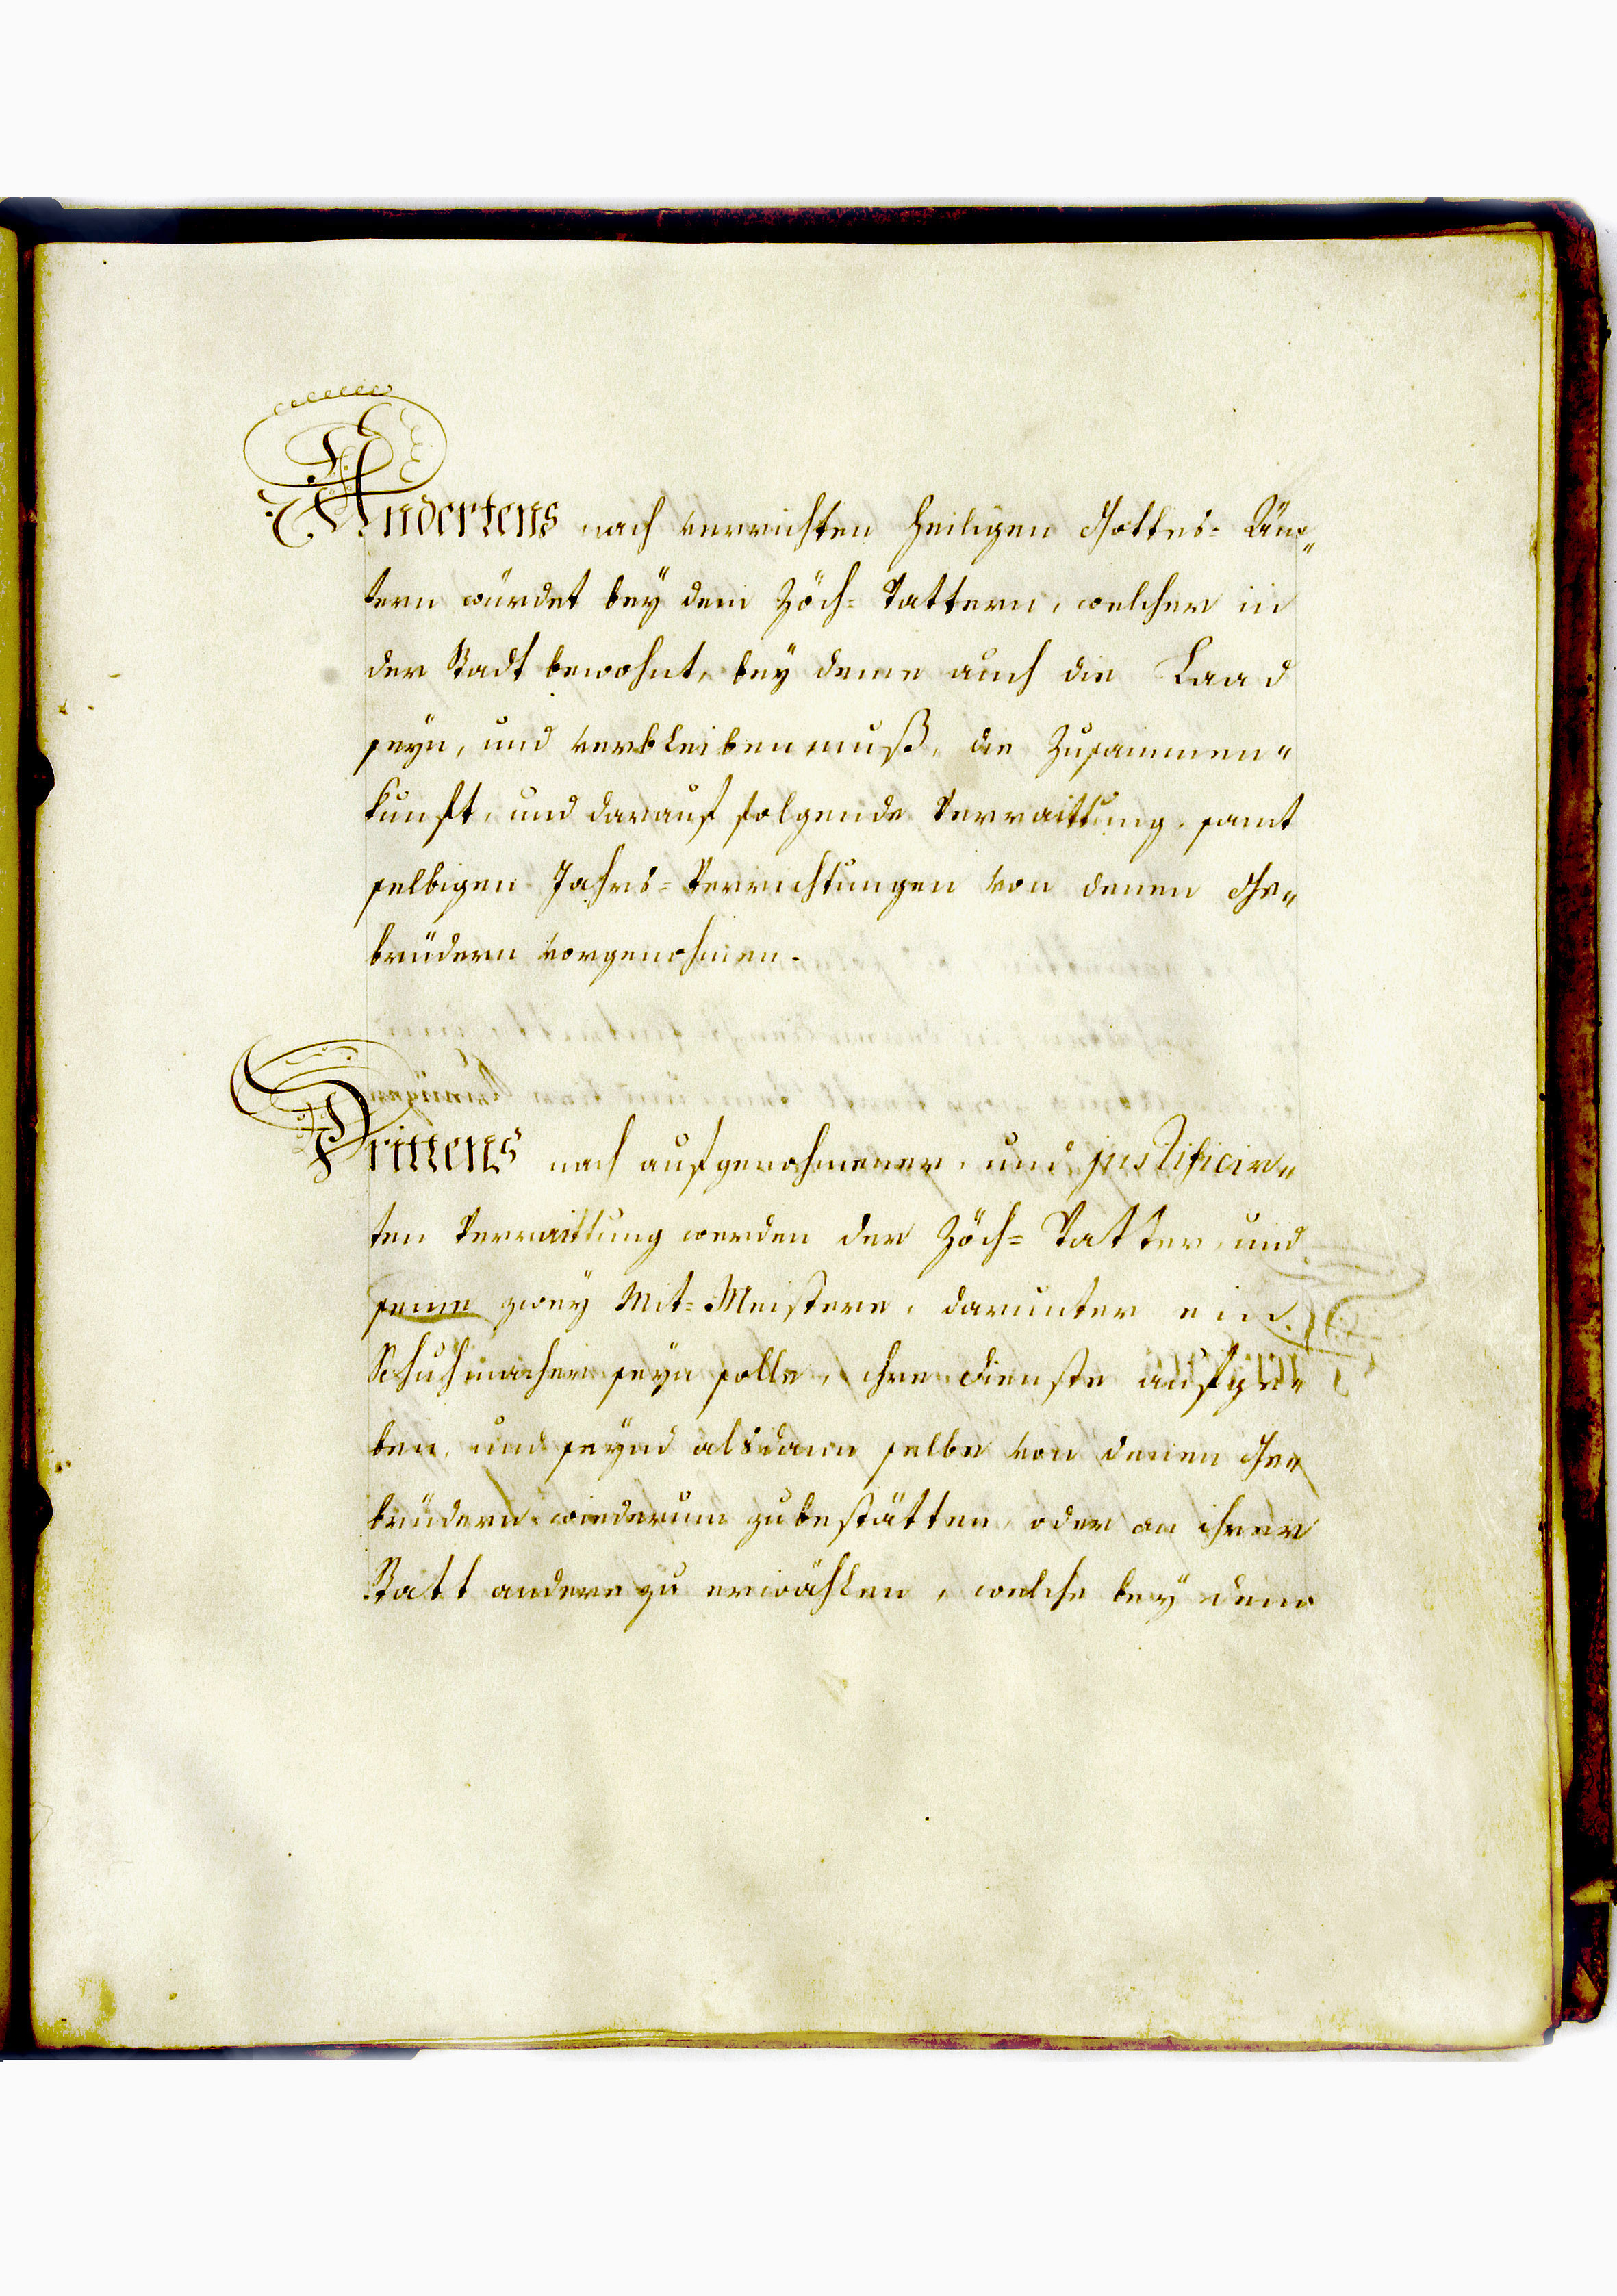 Andertens nach verrichten heiligen Gottes= Äm„
tern würdet bey dem Zöch= Vattern, welcher in
der Stadt bewohnt, bey deme auch die Laad
seyn, und verbleiben muß, die Zusammen„
kunft, und darauf folgende Verraittung, samt
selbigen Jahrs=Verrichtungen von denen Ge„
brüdern vorgenohmen.
Drittens nach aufgenohmener, und justificir„
ten Verraittung werden der Zöch= Vatter, und
seine zwey Mit=Meistere, darunter ein
Schuhmacher seyn solle, ihre Dienste aufge„
ben, und seynd alsdann selbe von denen Ge„
brüdern wiederum zubestätten, oder an ihrer
Statt andere zu erwählen, welche bey dem